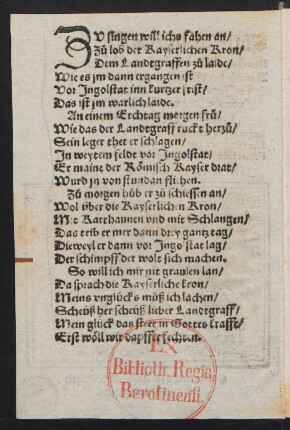 ZV singen will ichs fahen an/
Zů lob der Kayserlichen Kron/
Dem Landtgraffen zů laide/
Wie es jm dann ergangen ist
Vor Ingolstat inn kurtzer frist/
Das ist jm warlich laide.
An einem Erchtag morgen frů/
Wie das der Landtgraff ruckt herzů/
Sein leger thet er schlagen/
In weytem feldt vor Ingolstat/
Er maint der Römisch Kayser drat/
Wurd jn von stundan fliehen.
Zů morgen hůb er zů schiessen an/
Wol über die Kayserlichen Kron/
Mit Karthaunen vnd mit Schlangen/
Das trib er mer dann drey gantz tag/
Dieweyl er dann vor Ingolstat lag/
Der schimpff der wolt sich machen.
So will ich mir nit grausen lan/
Da sprach die Kayserliche kron/
Meins vnglücks můß ich lachen/
Scheüß her scheüß lieber Landtgraff/
Mein glück das steet in Gottes krafft/
Erst wöll wir dapffer fechten.
EX
Biblioth. Regia
Berolinensi.